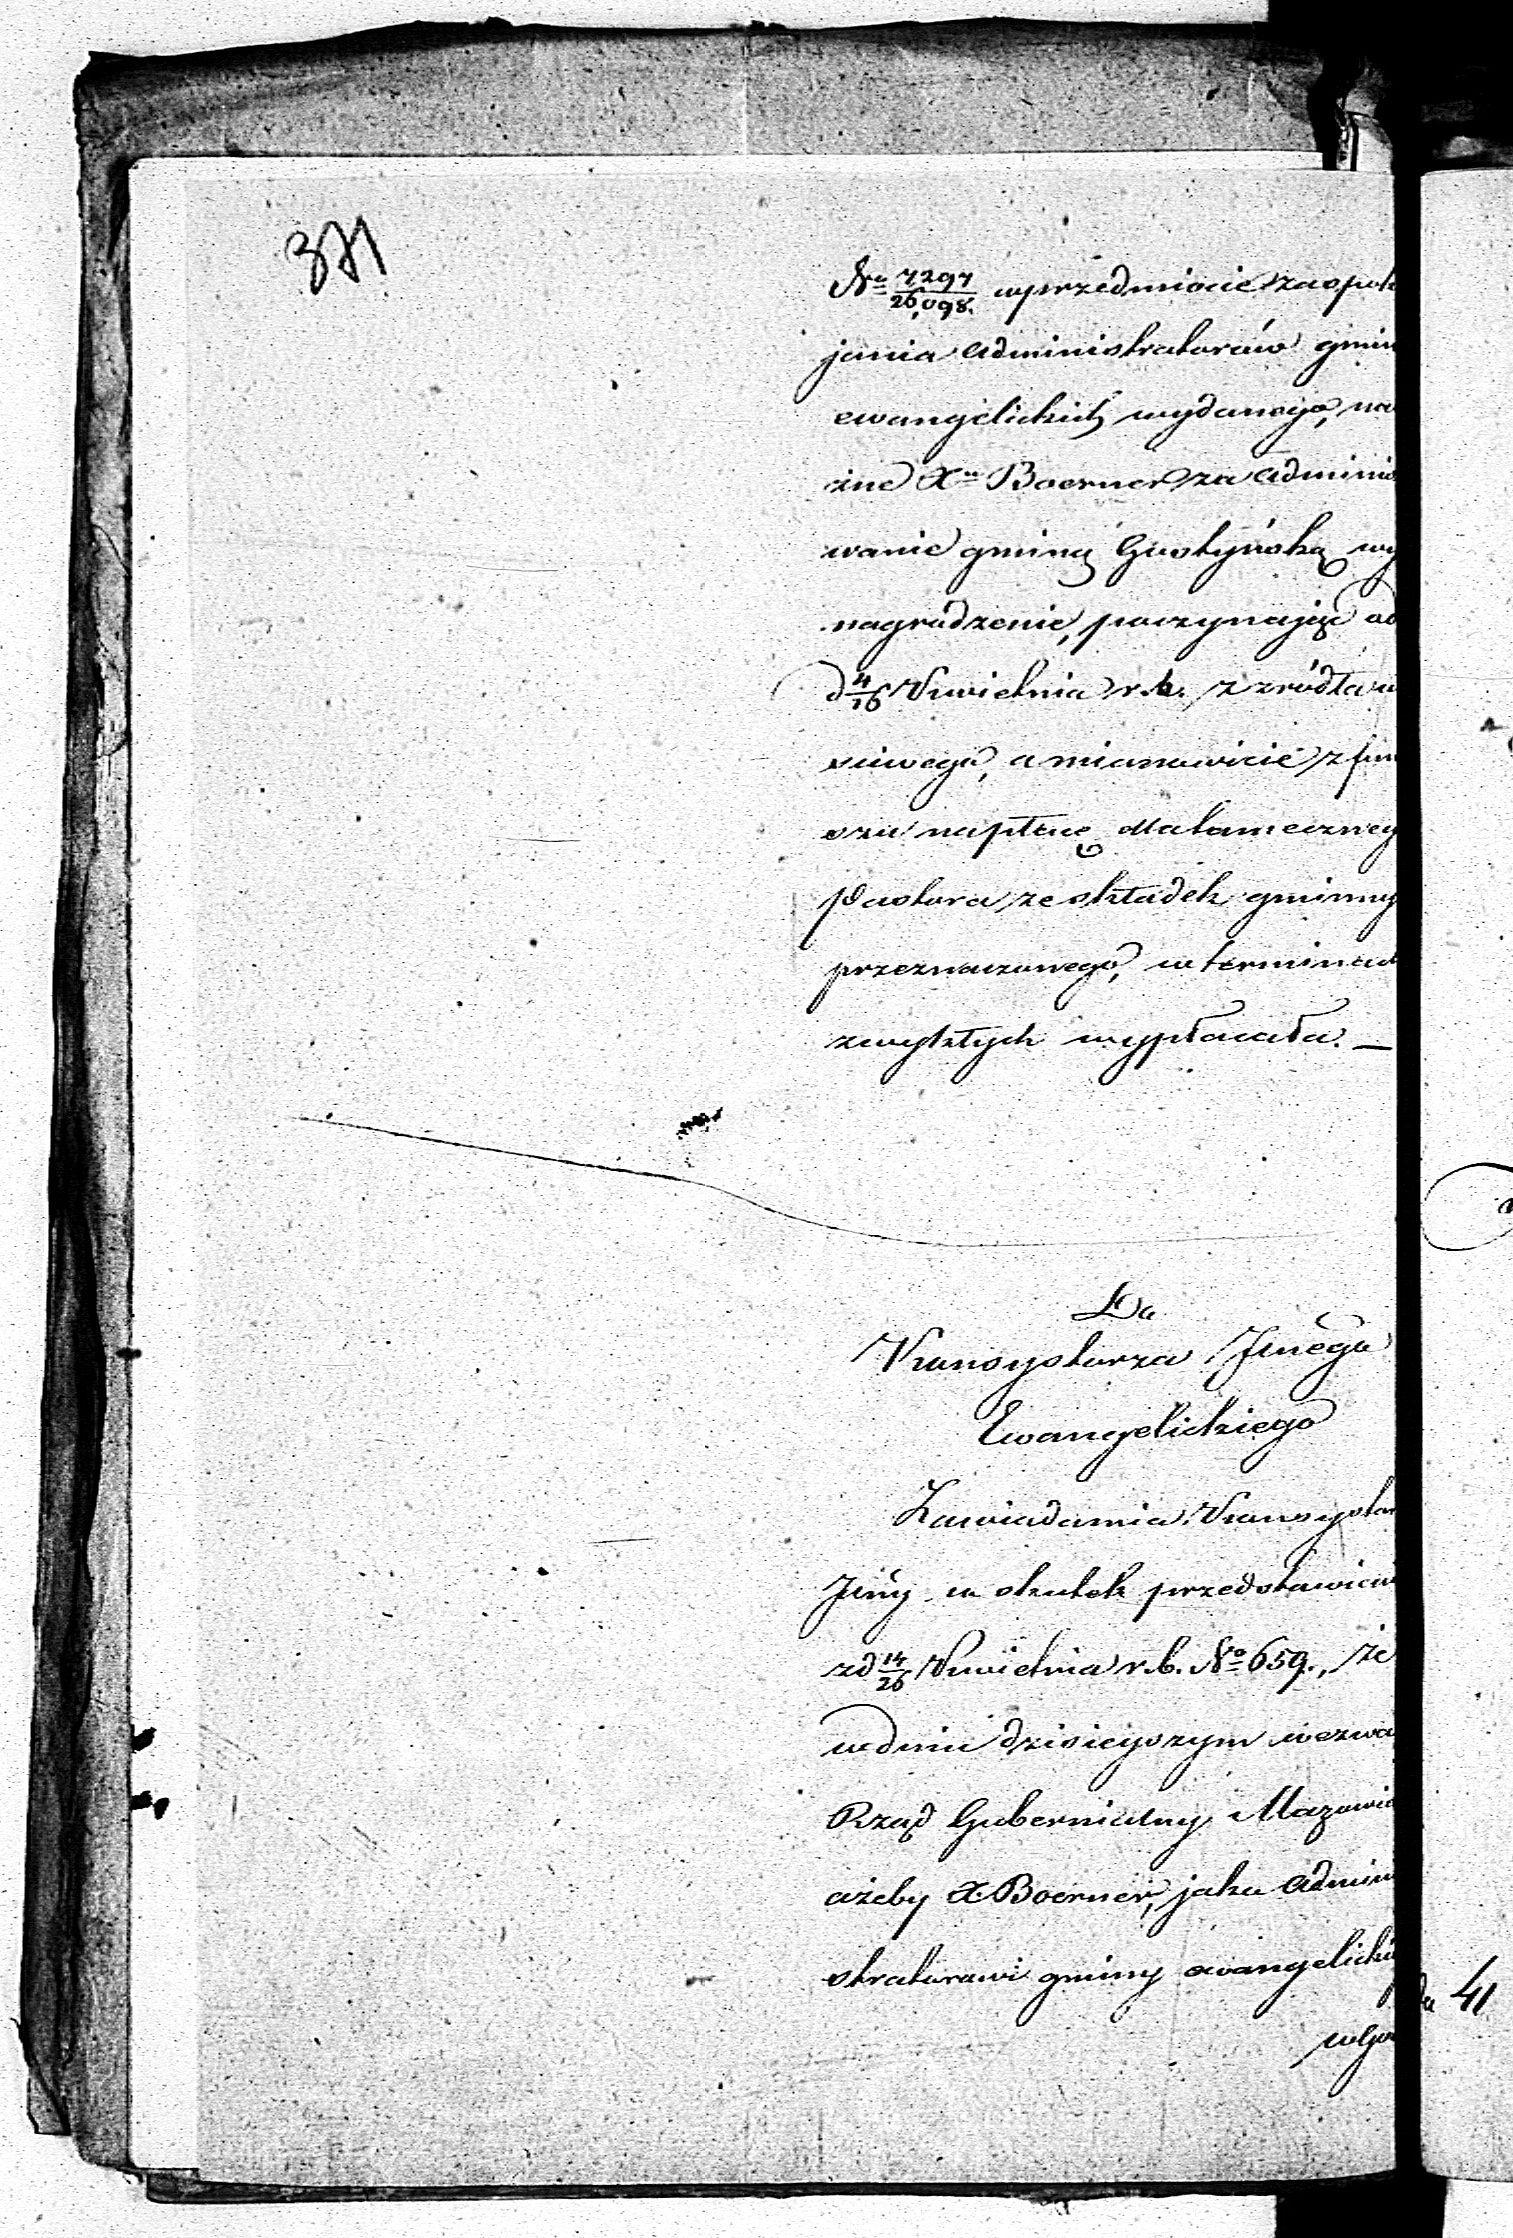 371
No 7297/26,098. w przedmiocie zaspok
jania Administratorów gmin
ewangelickich wydanego, na
żne Xu Boerner za Adminis
wanie gminą Gostyńską wy
nagrodzenie, poczynając od
d 4/16 Kwietnia r. b. z źródła w
ściwego, a mianowicie z fun
szu na płacę dla tamecznego
Pastora ze składek gminny
przeznaczonego, w terminach
zwykłych wypłacała. —
Do
Konsystorza Jnego
Ewangelickiego
Zawiadamia Konsystor
Jlny w skutek przedstawieni
z d 14/26 Kwietnia r. b. No 659., że
w dniu dzisieyszym wezwa
Rząd Gubernialny Mazowie
ażeby X. Boerner, jako Admini
stratorowi gminy ewangelickie
w Go
41